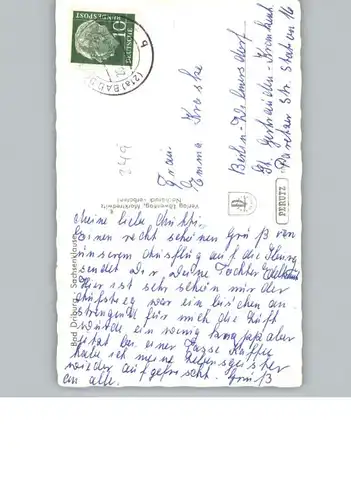 Meine liebe Mutti,
Einen recht schönen Gruß von
unserem Ausflug auf die Iburg
sendet Dir, Deine Tochter
Hier ist sehr schön nur der
Aufstieg war ein bischen an
strengend für mich die Luft
wurde ein wenig knapp aber
jetzt bei einer Tasse Kaffee
habe ich meine Lebensgeister
wieder aufgefrischt. Gruß
an alle.
Frau
Emma
Berlin-Wilmersdorf
St. Gertrauden-Krankenh
Paretzer Str. Station 16
249
10
DEUTSCHE
BUNDESPOST
(21a) BAD
Bad Driburg Sachsenklause
Verlag
Nachdruck verboten
PERUTZ